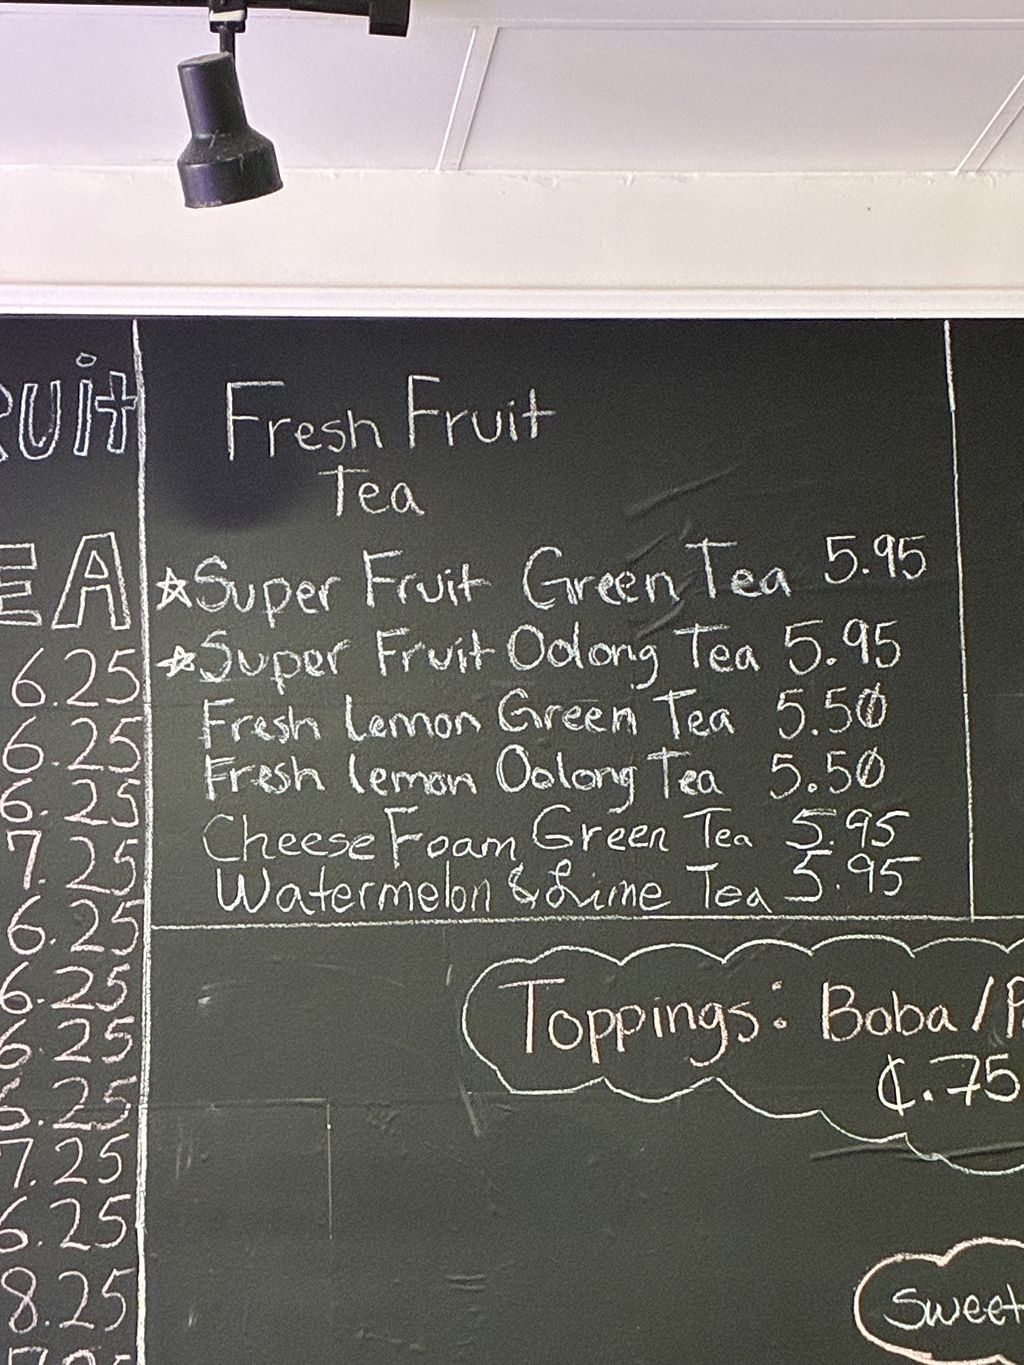 RUit
EA
6.25
6.25
6.25
7.25
6.25
6.25
6.25
6.25
7.25
6.25
8.25
Fresh Fruit
Tea
☆Super Fruit Green Tea 5.95
☆Super Fruit Oolong Tea 5.95
Fresh lemon Green Tea 5.50
Fresh lemon Oolong Tea 5.50
Cheese Foam Green Tea 5.95
Watermelon & Lime Tea 5.95
Toppings: Boba/P
¢.75
Sweet